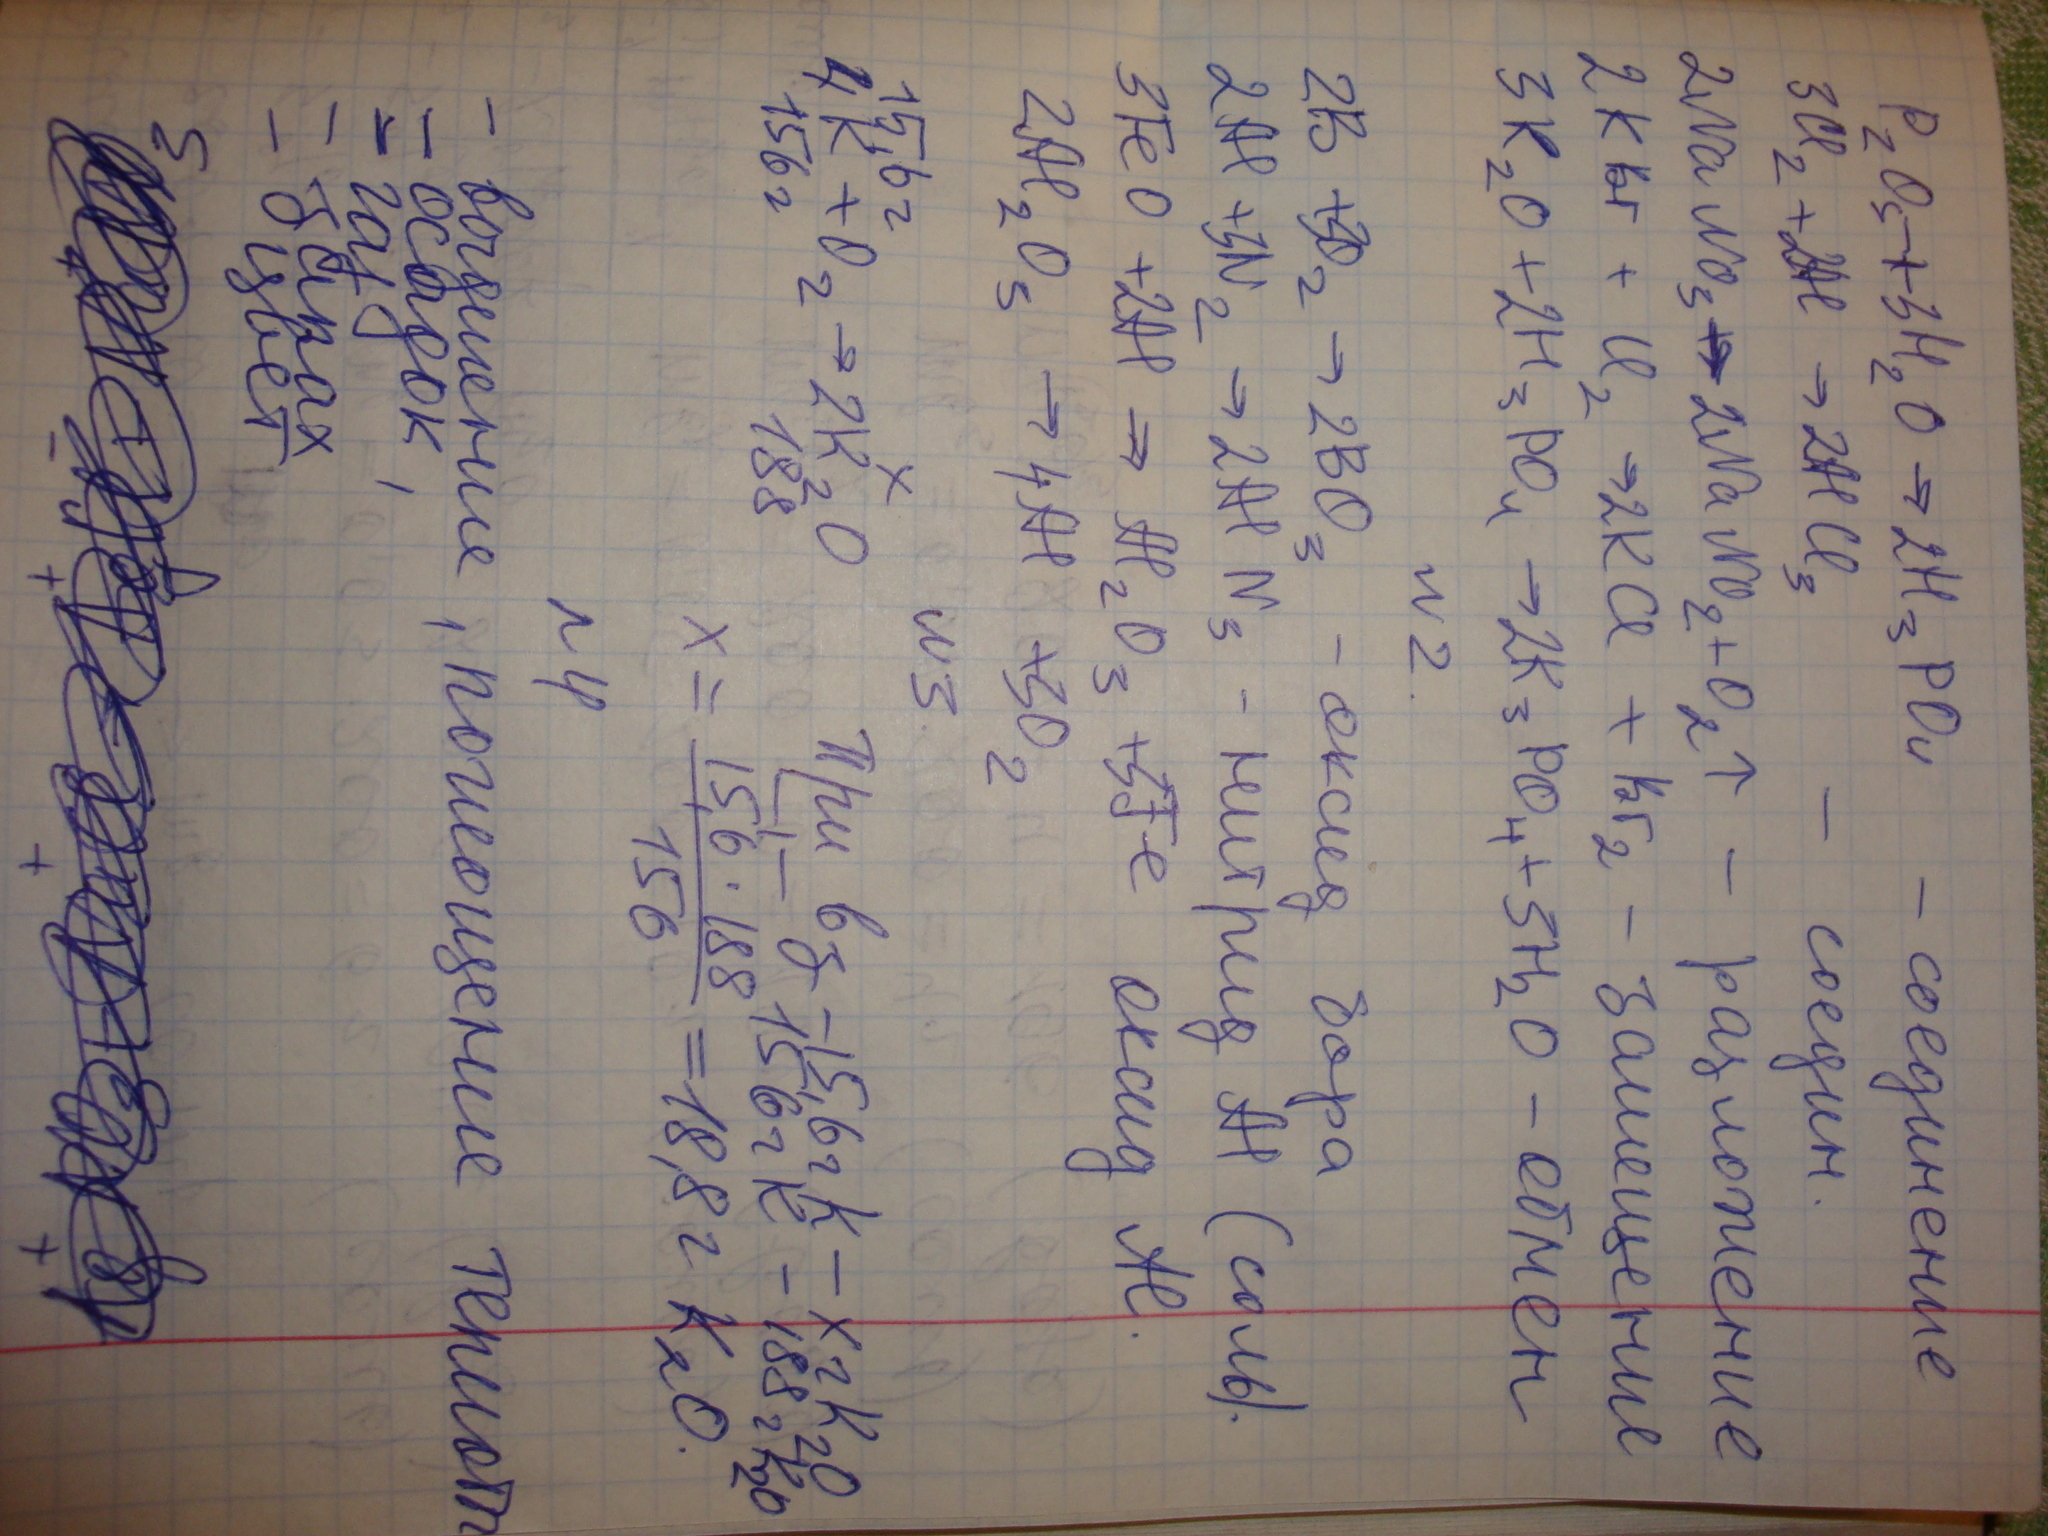 P₂O₅ + 3H₂O → 2H₃PO₄ – соединение
3Cl₂ + 2Al → 2AlCl₃ – соедин.
2NaNO₃ → 2NaNO₂ + O₂↑ – разложение
2KBr + Cl₂ → 2KCl + Br₂ – замещение
3K₂O + 2H₃PO₄ → 2K₃PO₄ + 3H₂O – обмен
N2.
2B + 3O₂ → 2BO₃ – оксид бора
2Al + 3N₂ → 2AlN₃ – нитрид Al (соль).
3FeO + 2Al → Al₂O₃ + 3Fe оксид Al.
2Al₂O₃ → 4Al + 3O₂
N3.
15,6г x
4K + O₂ → 2K₂O При вз – 15,6г K – xг K₂O
156г 188 – 156г K – 188г K₂O
x = 15,6 · 188 / 156 = 18,8г K₂O.
N4
– выделение, поглощение теплот
– осадок,
– газ
– запах
– цвет
5